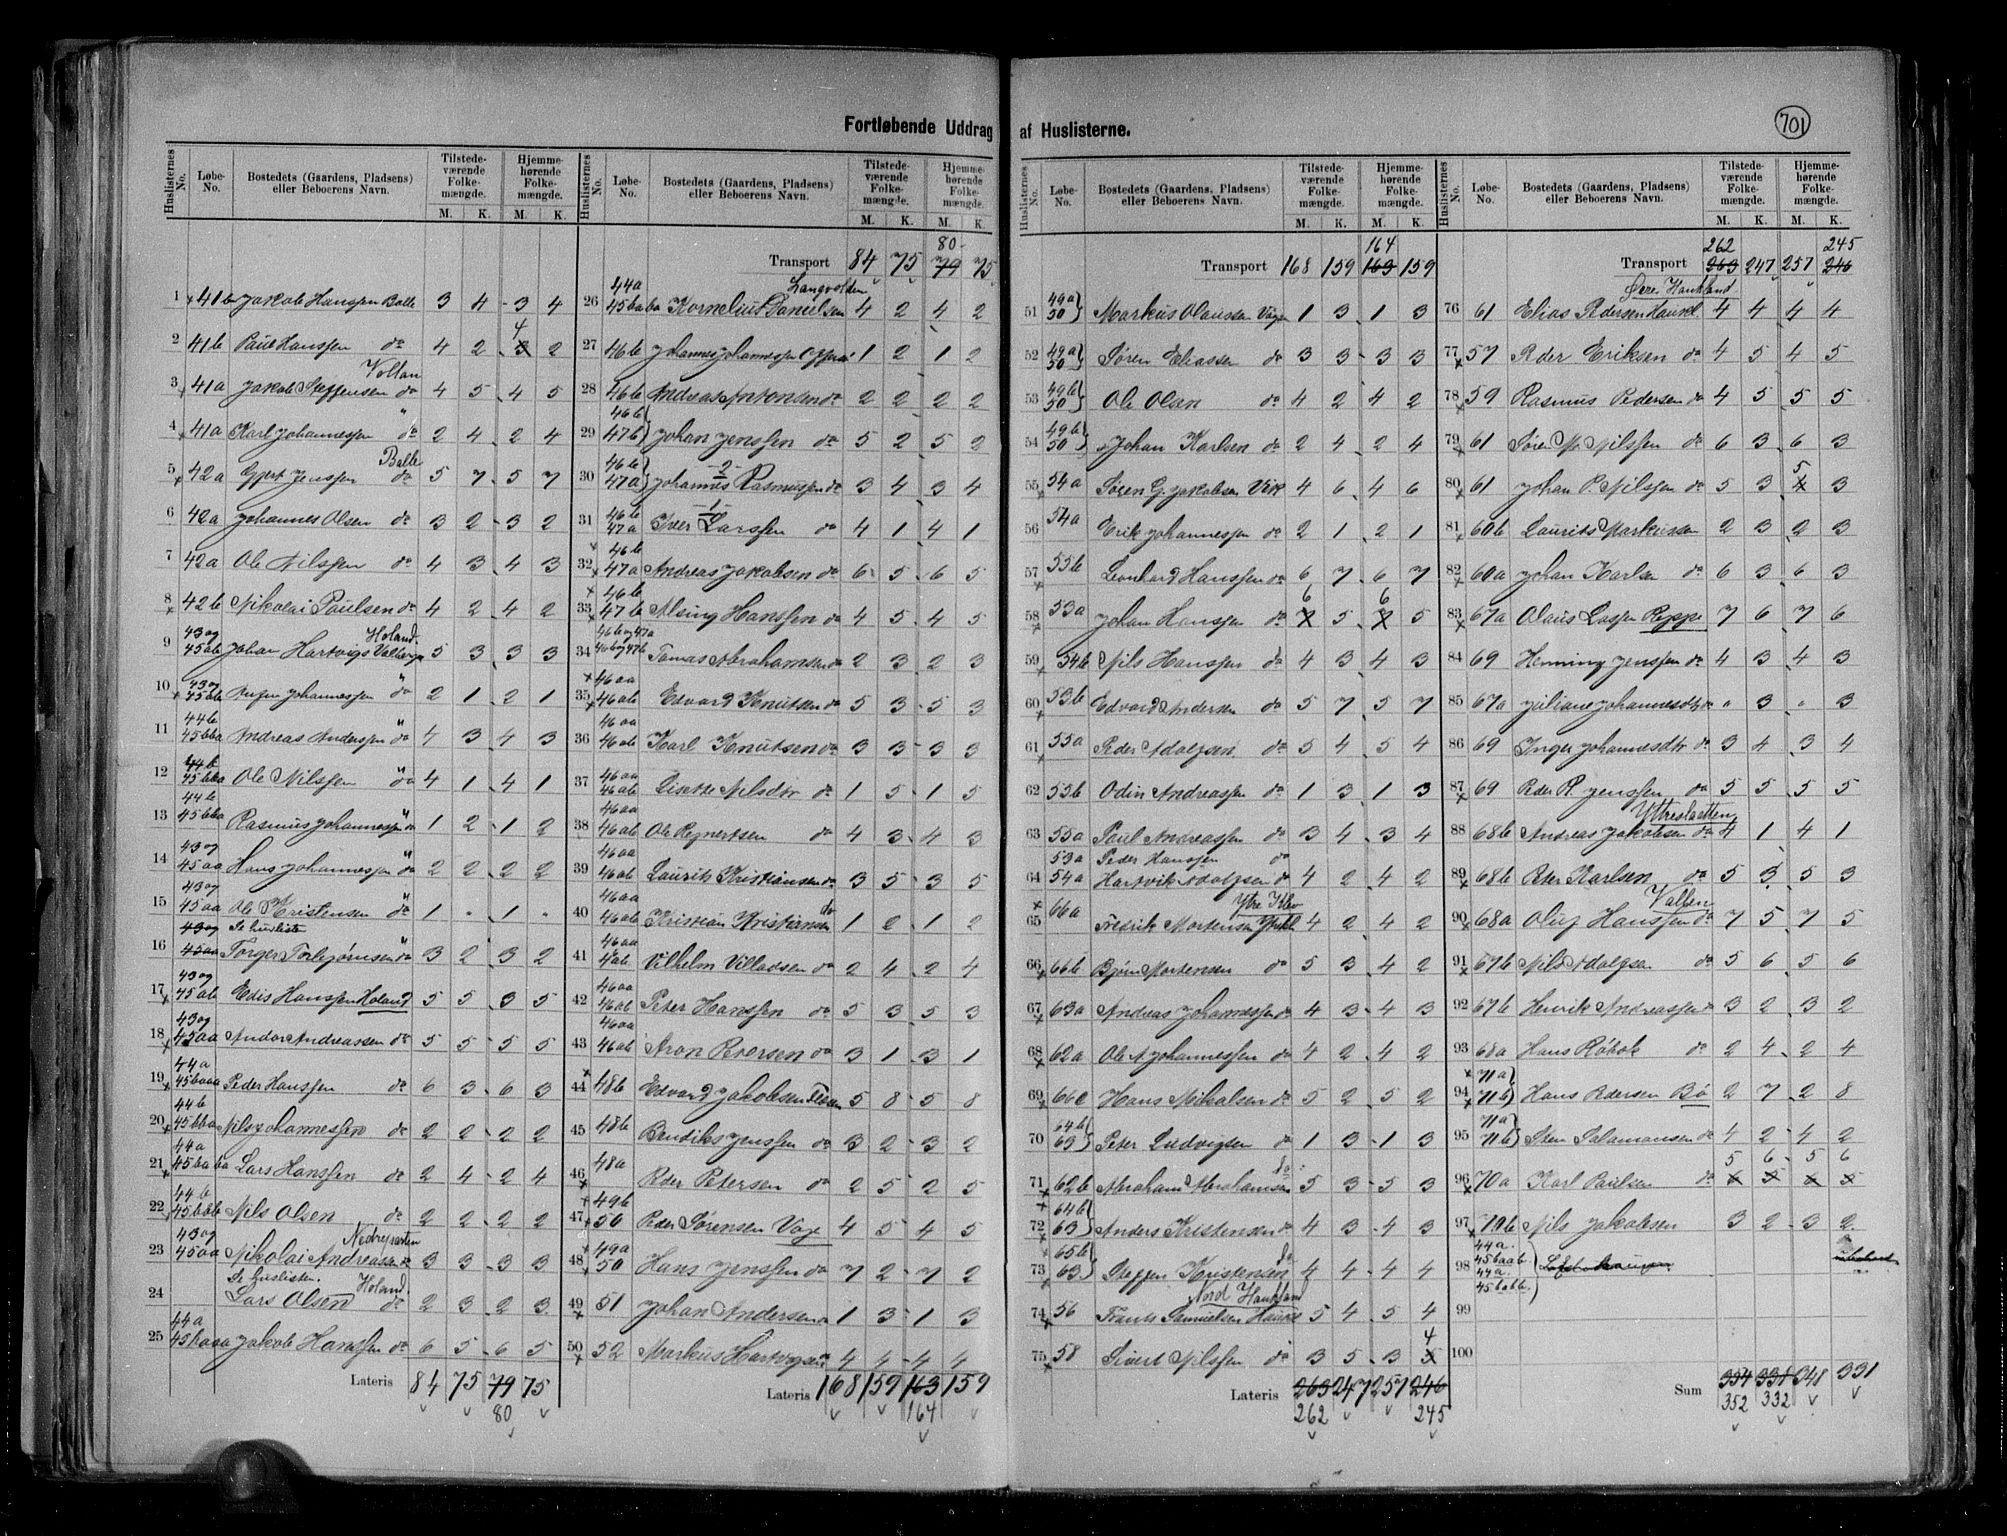 Fortløbende Uddrag af Huslisterne.
701
Huslisternes No. Løbe-No. Bostedets (Gaardens, Pladsens) eller Beboerens Navn. Tilstedeværende Folkemængde. M. K. Hjemmehørende Folkemængde. M. K.
1 41b Jakob Hanssen Balle 3 4 3 4
2 41b Paul Hanssen do 4 2 4 2
Vollan
3 41a Jakob Steffensen do 4 5 4 5
4 41a Karl Johannessen do 2 4 2 4
Balle
5 42a Jenssen do 5 7 5 7
6 42a Johannes Olsen do 3 2 3 2
7 42a Ole Nilssen do 4 3 4 3
8 42b Nikolai Paulsen do 4 2 4 2
Holand
9 43 og 45ab Johan Hartvigs 5 3 3 3
10 43 og 45bb Johannessen do 2 1 2 1
11 44b 45bba Andreas Anderssen do 4 3 4 3
12 44b 45bba Ole Nilssen do 4 1 4 1
13 44b 45bba Rasmus Johannessen do 1 2 1 2
14 43 og 45aa Hans Johannessen do 2 2 2 2
15 43 og 45aa Ole Kristensen do 1 " 1 "
Se huslisten
16 43 og 45aa Torger Torbjørnsen do 3 2 3 2
17 43 og 45ab Edis Hanssen Holand 5 5 3 5
18 43 og 45aa Andor Andreassen do 5 5 5 5
19 44a 45baaa Peder Hanssen do 6 3 6 3
20 44b 45bba Nils Johannessen do 2 2 2 2
21 44a 45baba Lars Hanssen do 2 4 2 4
22 44b 45bbb Nils Olsen do 2 2 2 2
23 43 og 45aa Nikolai Andreassen do 3 3 3 3
Se huslisten. Holand.
24 Lars Olsen do 2 3 2 3
25 44a 45baaa Jakob Hanssen do 6 5 6 5
Lateris 84 75 79 75
80
Huslisternes No. Løbe-No. Bostedets (Gaardens, Pladsens) eller Beboerens Navn. Tilstedeværende Folkemængde. M. K. Hjemmehørende Folkemængde. M. K.
80
Transport 84 75 79 75
26 44a 45baba Kornelius Danielsen 4 2 4 2
27 46b Johannes Johannessen 1 2 1 2
28 46b Andreas Antonsen do 2 2 2 2
29 46b 47b Johan Jenssen do 5 2 5 2
30 46b 47a Johannes Rasmussen do 3 4 3 4
31 46b 47a Iver Larssen do 4 1 4 1
32 46b 47a Andreas Jakobsen do 6 5 6 5
33 46b 47b Alsing Hanssen do 4 5 4 5
34 46b og 47a 46b og 47b Tomas Abrahamsen do 2 3 2 3
35 46aa 46ab Edvard Knutsen do 5 3 5 3
36 46aa 46ab Karl Knutsen do 3 3 3 3
37 46aa 46ab Lisette Nilsdtr do 1 5 1 5
38 46aa 46ab Ole Regnertsen do 4 3 4 3
39 46aa 46ab Laurits Kristiansen do 3 5 3 5
40 46aa 46ab Kristian Kristiansen do 1 2 1 2
41 46aa 46ab Vilhelm Villadsen do 2 4 2 4
42 46aa 46ab Peter Hanssen do 5 3 5 3
43 46aa 46ab Aron Petersen do 3 1 3 1
44 48b Edvard Jakobsen 5 8 5 8
45 48b Bendiks Jenssen do 3 2 3 2
46 48a Peder Petersen do 2 5 2 5
47 49b 50 Peder Sørensen Vage 4 5 4 5
48 49a 50 Hans Jenssen do 7 2 7 2
49 51 Johan Andersen do 1 3 1 3
50 52 Markus Hartvigsen 4 4 4 4
Lateris 168 159 163 159
164
Huslisternes No. Løbe-No. Bostedets (Gaardens, Pladsens) eller Beboerens Navn. Tilstedeværende Folkemængde. M. K. Hjemmehørende Folkemængde. M. K.
164
Transport 168 159 163 159
51 49a 50 Markus Olaussen 1 3 1 3
52 49a 50 Søren Eliassen do 3 3 3 3
53 49b 50 Ole Olsen do 4 2 4 2
54 49b 50 Johan Karlsen do 2 4 2 4
55 54a Søren G. Jakobsen 4 6 4 6
56 54a Erik Johannessen do 2 1 2 1
57 53b Leonhard Hanssen do 6 7 6 7
6 6
58 53a Johan Hanssen do 7 5 7 5
59 54b Nils Hanssen do 4 3 4 3
60 53b Edvard Andersen do 5 7 5 7
61 55a Peder Adolfsen do 5 4 5 4
62 53b Odin Andreassen do 1 3 1 3
63 55a Paul Andreassen do 3 4 3 4
53a Peder Hanssen do
64 54a Hartvik Adolfsen do 4 2 4 2
65 66a Fredrik Mortensen 4 2 4 2
66 66b Bjørn Mortensen do 5 3 4 2
67 63a Andreas Johannessen do 4 3 4 3
68 62a Ole A Johannessen do 4 2 4 2
69 66c Hans Mikalsen do 5 2 5 2
70 64b 63 Peter Ludvigsen do 1 3 1 3
71 62b Abraham Abrahamsen do 5 3 5 3
72 64b 63 Anders Kristensen do 4 3 4 3
73 65b 63 Steffen Kristensen do 4 4 4 4
Nord Haukland
74 56 Frants Samuelsen 5 4 5 4
4
75 58 Sivert Nilssen do 3 5 3 5
Lateris 263 247 257 246
262 245
Huslisternes No. Løbe-No. Bostedets (Gaardens, Pladsens) eller Beboerens Navn. Tilstedeværende Folkemængde. M. K. Hjemmehørende Folkemængde. M. K.
262 245
Transport 263 247 257 246
Søre Haukland
76 61 Elias Pedersen 4 4 4 4
77 57 Peder Eriksen do 4 5 4 5
78 59 Rasmus Pedersen do 4 5 5 5
79 61 Søren M. Nilssen do 6 3 6 3
80 61 Johan P. Nilssen do 5 3 5 3
81 60b Laurits Markussen 2 3 2 3
82 60a Johan Karlsen do 6 3 6 3
83 67a Olaus Lassen Reppe 7 6 7 6
84 69 Henning Jenssen do 4 3 4 3
85 67a Juliane Johannesdtr do " 3 " 3
86 69 Inger Johannesdtr do 3 4 3 4
87 69 Peder R. Jenssen do 5 5 5 5
88 68b Andreas Jakobsen do 4 1 4 1
89 68b Peter Karlsen do 5 3 5 3
Vallen
90 68a Oluf Hanssen do 7 5 7 5
91 67b Nils Adolfsen do 5 6 5 6
92 67b Henrik Andreassen do 3 2 3 2
93 68a Hans Røbok do 2 4 2 4
94 71a 71b Hans Pedersen Bø 2 7 2 8
95 71a 71b Sten Salamonsen do 4 2 4 2
5 6 5 6
96 70a Karl Paulsen do 6 5 6 5
97 70b Nils Jakobsen 3 2 3 2
98 44a. 45baab. 44a. 45babb.
99
100
Sum 354 331 348 331
352 332